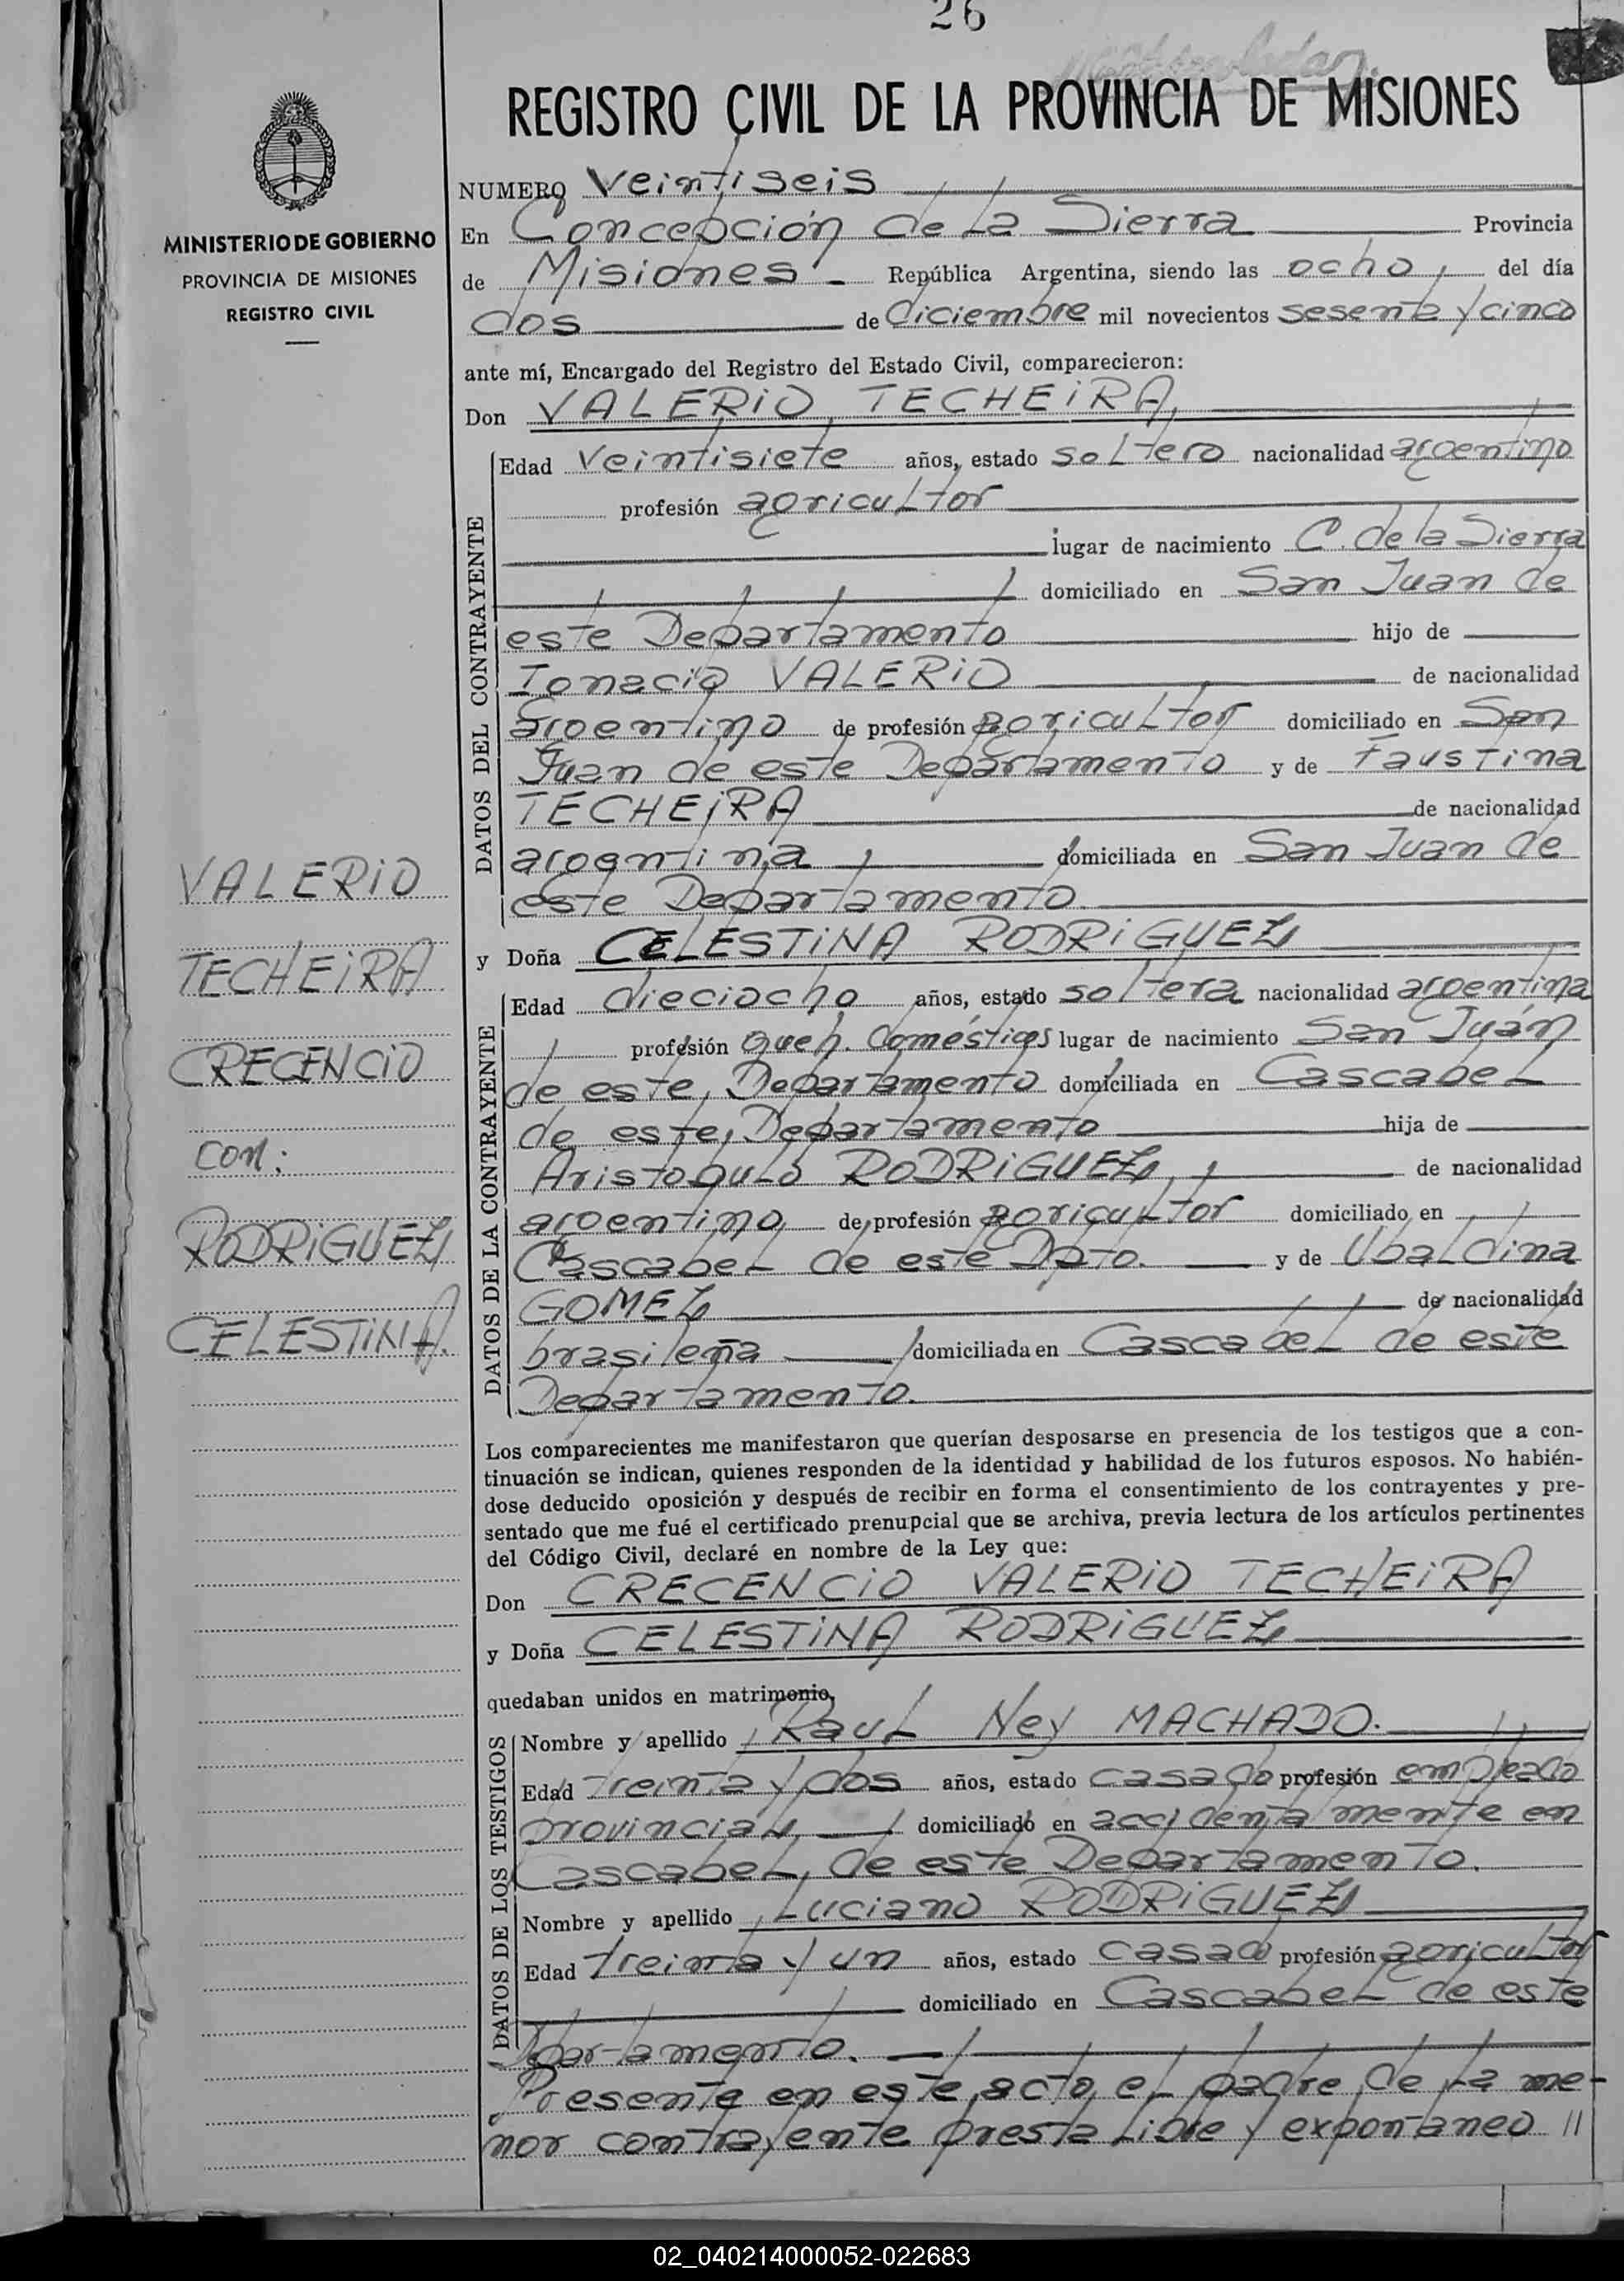 26
REGISTRO CIVIL DE LA PROVINCIA DE MISIONES
MINISTERIO DE GOBIERNO
PROVINCIA DE MISIONES
REGISTRO CIVIL
NUMERO Veintiseis
En Concepción de La Sierra Provincia
de Misiones República Argentina, siendo las ocho, del día
dos de diciembre mil novecientos sesenta y cinco
ante mí, Encargado del Registro del Estado Civil, comparecieron:
Don VALERIO TECHEIRA,
DATOS DEL CONTRAYENTE
Edad veintisiete años, estado soltero nacionalidad argentino
profesión agricultor
lugar de nacimiento C. de la Sierra
domiciliado en San Juan de
este Departamento hijo de
Ignacio VALERIO de nacionalidad
argentino de profesión agricultor domiciliado en San
Juan de este Departamento y de Faustina
TECHEIRA de nacionalidad
argentina, domiciliada en San Juan de
este Departamento.
y Doña CELESTINA RODRIGUEZ
DATOS DE LA CONTRAYENTE
Edad dieciocho años, estado soltera nacionalidad argentina
profesión queh. domésticos lugar de nacimiento San Juán
de este, Departamento domiciliada en Cascabel
de este, Departamento hija de
Aristobulo RODRIGUEZ, de nacionalidad
argentino de profesión agricultor domiciliado en
Cascabel de este Dpto. y de Ubaldina
GOMEZ de nacionalidad
brasileña domiciliada en Cascabel de este
Departamento.
Los comparecientes me manifestaron que querían desposarse en presencia de los testigos que a con-
tinuación se indican, quienes responden de la identidad y habilidad de los futuros esposos. No habién-
dose deducido oposición y después de recibir en forma el consentimiento de los contrayentes y pre-
sentado que me fué el certificado prenupcial que se archiva, previa lectura de los artículos pertinentes
del Código Civil, declaré en nombre de la Ley que:
Don CRECENCIO VALERIO TECHEIRA
y Doña CELESTINA RODRIGUEZ
quedaban unidos en matrimonio,
DATOS DE LOS TESTIGOS
Nombre y apellido Raul Ney MACHADO.
Edad treinta y dos años, estado casado profesión empleado
provincial, domiciliado en accidentalmente en
Cascabel, de este Departamento.
Nombre y apellido Luciano RODRIGUEZ
Edad treinta y un años, estado casado profesión agricultor
domiciliado en Cascabel de este
Departamento.
Presente en este acto el padre de la me-
nor contrayente presta libre y expontaneo //
VALERIO
TECHEIRA
CRECENCIO
con:
RODRIGUEZ
CELESTINA.
02_040214000052-022683